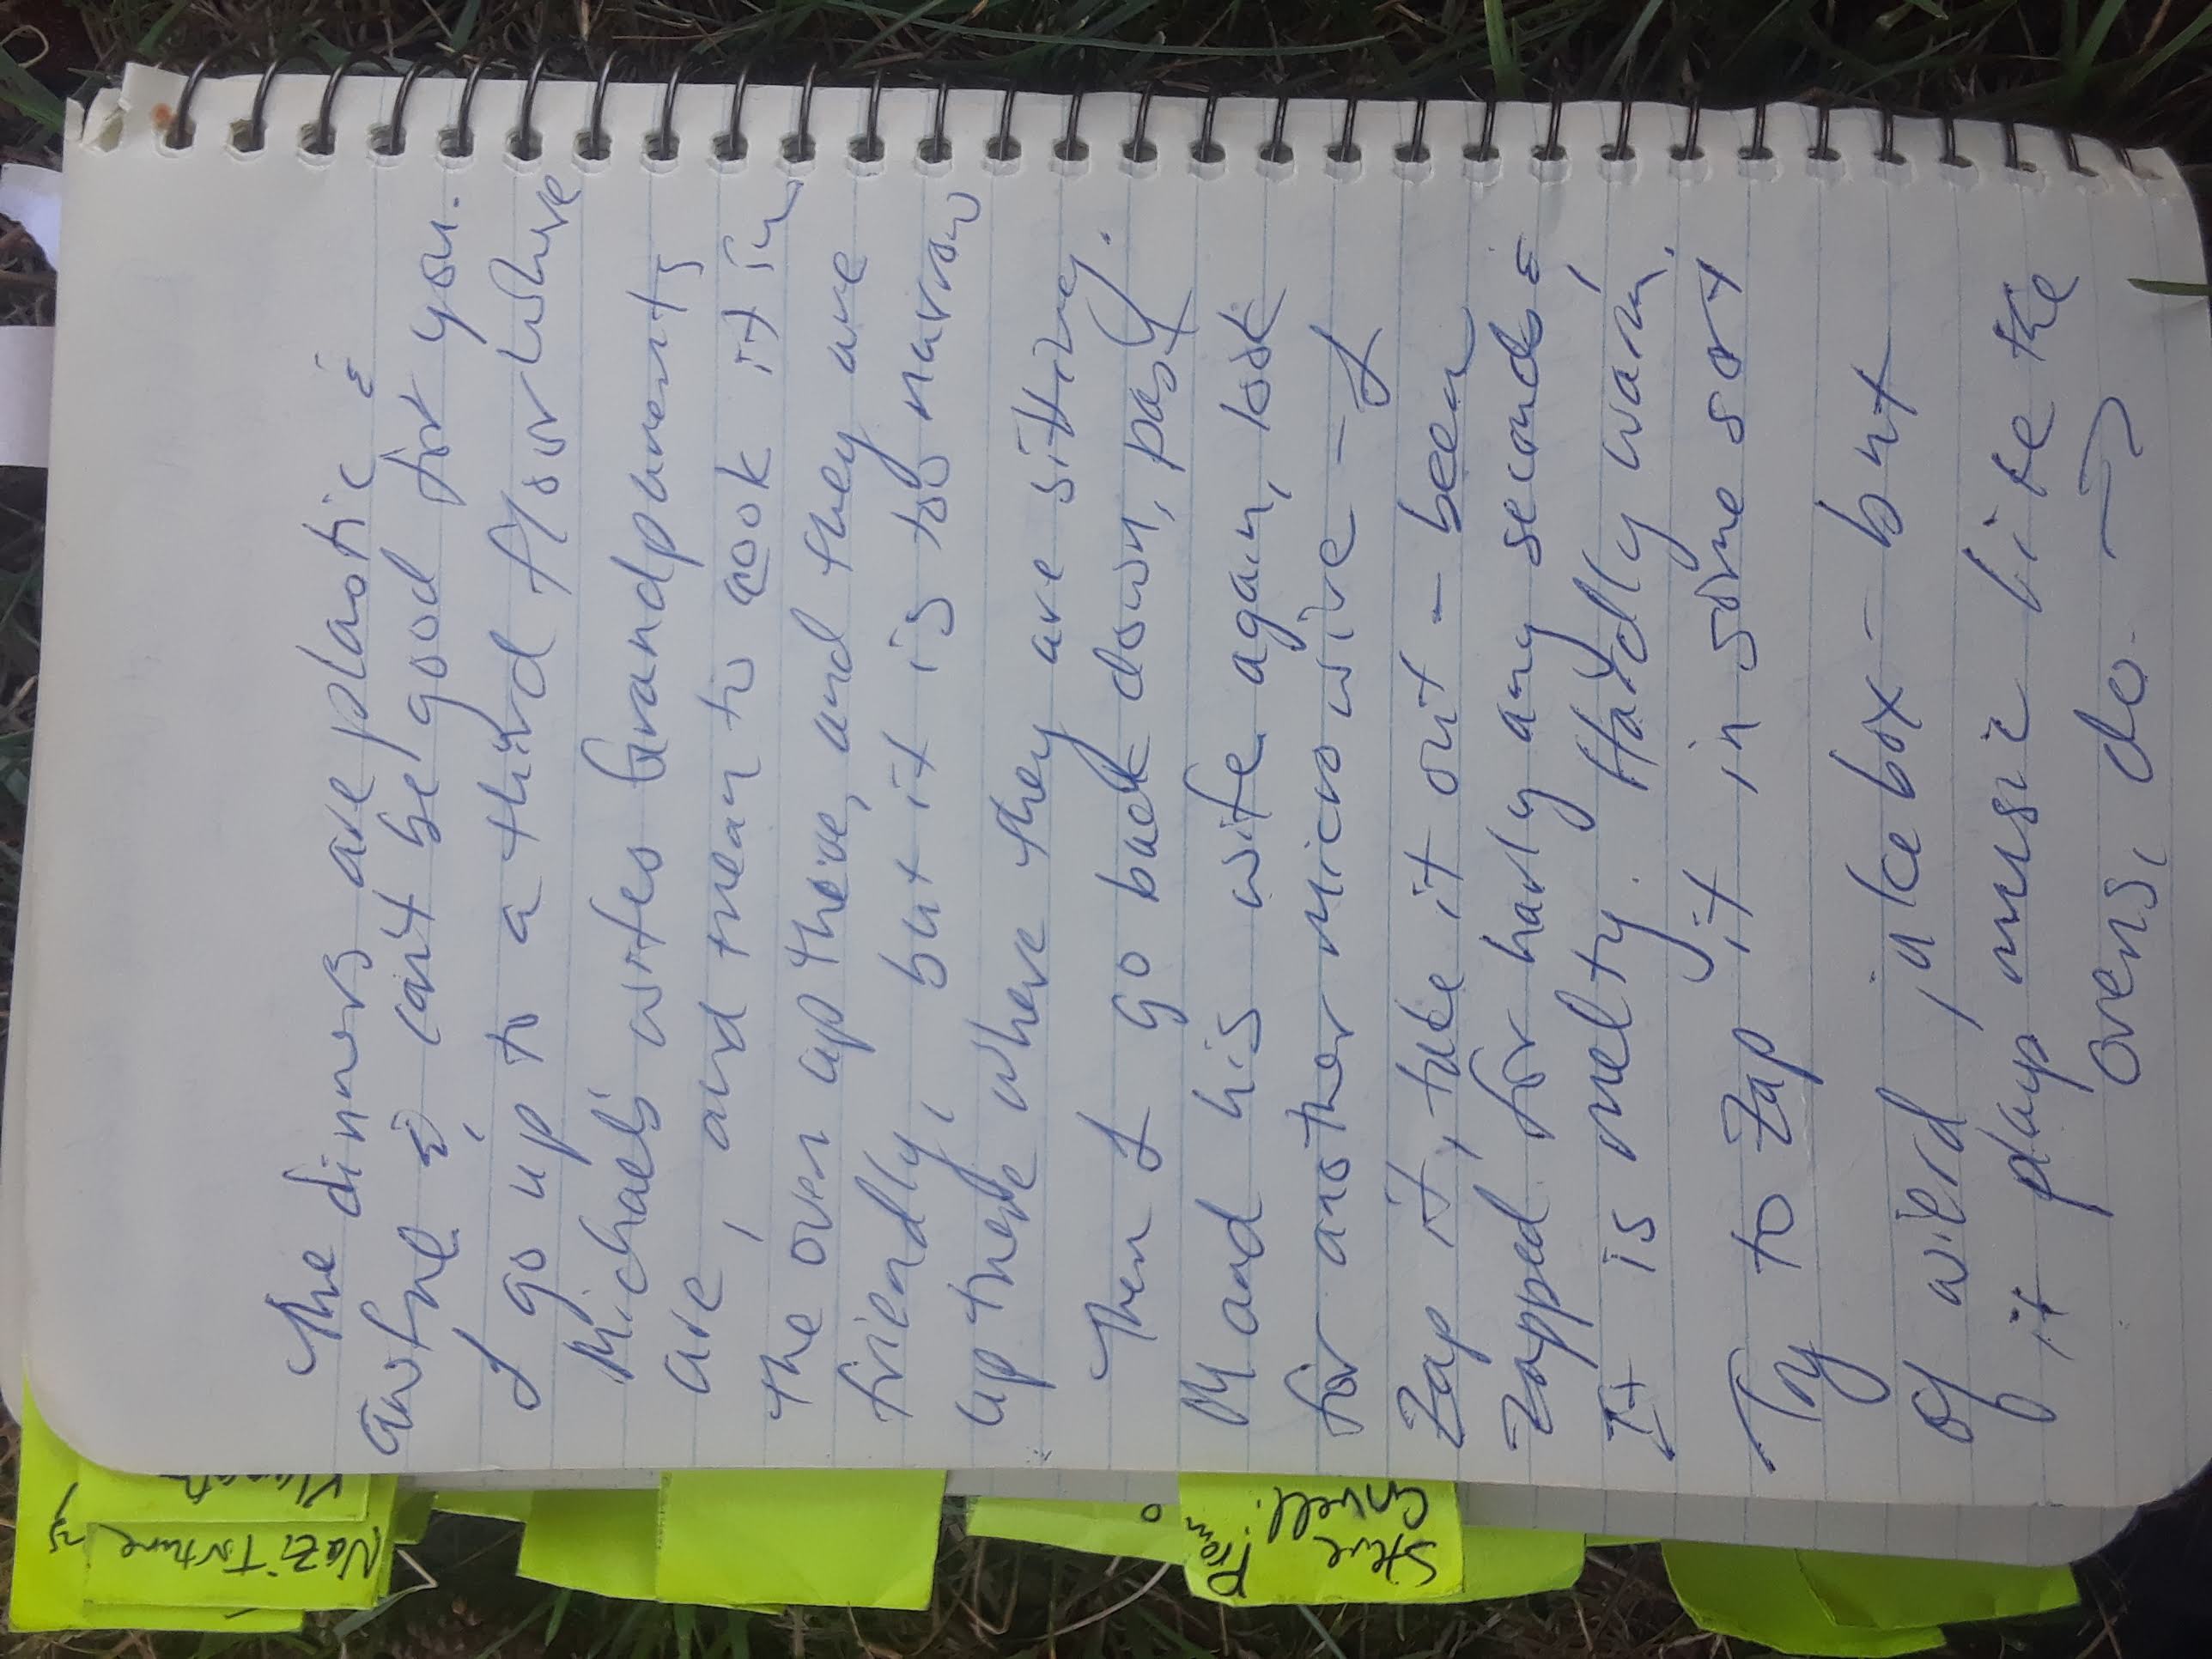 The dinners are plastic &
awful & can't be good for you.
I go up to a third floor where
Michael's wifes Grandparents
are, and mean to cook it in
the oven up there, and they are
friendly, but it is too narrow
up there where they are sitting.
Then I go back down, past
M and his wife again, look
for another microwive - I
Zap it, take it out - been
zapped for harly any seconds &
It is melty. Hardly warm,
Try to zap it in some sort
of wierd jukebox - but
it plays music like the
ovens, do. →
Nazi Torture
Steve
Carell
Prom